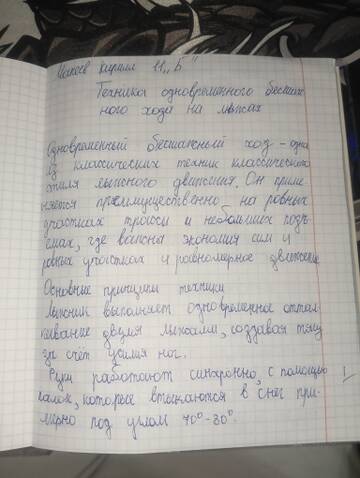 Кирилл 11 „Б"
Техника одновременного бесшаж
ного хода на лыжах
Одновременный бесшажный ход – одна
из классических техник классического
стиля лыжного движения. Он приме
няется преимущественно на ровных
участках трассы и небольших подъ
ёмах, где важны экономия сил и
ровных участках и равномерное движение
Основные принципы техники
Лыжник выполняет одновременное оттал
кивание двумя лыжами, создавая тягу
за счёт усилия ног.
Руки работают синхронно, с помощью
палок, которые втыкаются в снег при-
мерно под углом 70°-80°.